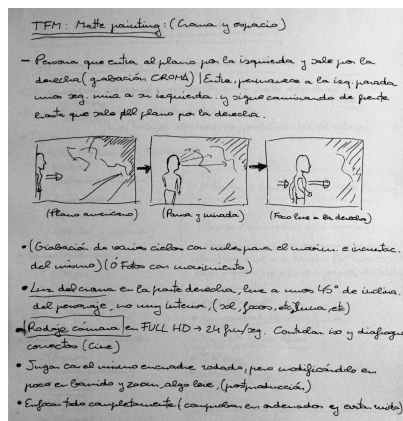 TFM: Matte painting: (Croma y espacio)
- Persona que entra al plano por la izquierda y sale por la
derecha (grabación CROMA) | Entra, permanece a la izq. parada
unos seg. mira a su izquierda. y sigue caminando de frente
hasta que sale del plano por la derecha.
(Plano americano)
(Pausa y mirada)
(Foco luz a la derecha)
• (Grabación de varios cielos con nubes para el movim. e incrustac.
del mismo) (Ó Fotos con movimiento)
• Luz del croma en la parte derecha, luz a unos 45° de inclina.
del personaje, no muy intensa, (sol, focos, etc,
• Rodaje cámara en FULL HD → 24 fm/seg. Controlar iso y diafragma
correctos (Cine)
• Jugar con el mismo encuadre rodado, pero modificándolo un
poco en barrido y zoom, algo leve, (postproducción)
• Enfocar todo completamente (comprobar en ordenador